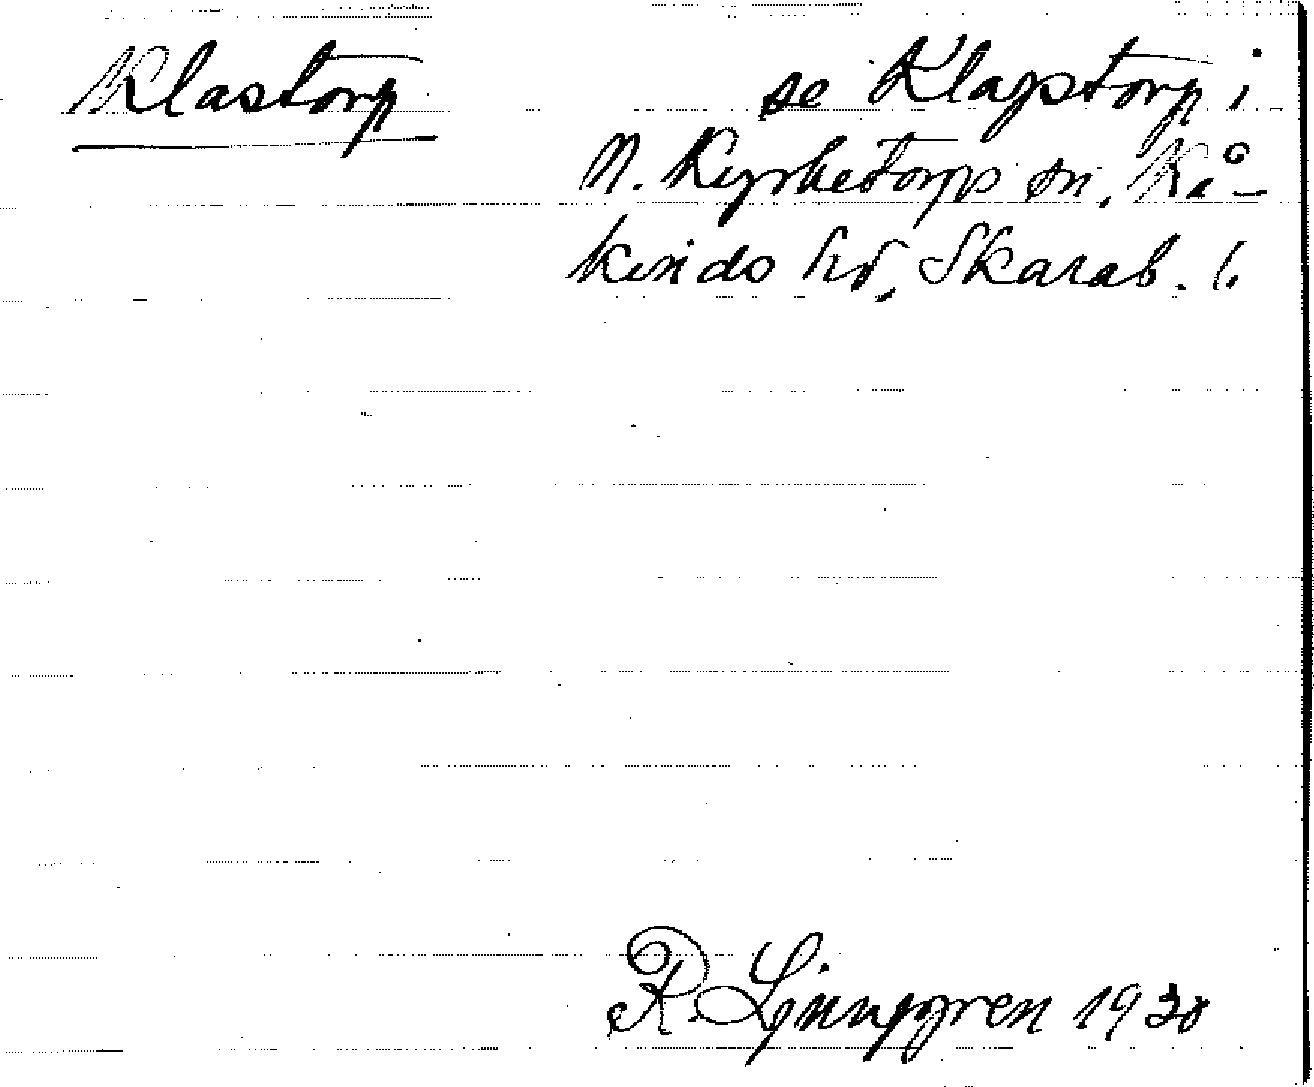 Klastorp
se Klapstorp i
N. Kyrketorps sn, Kå-
kinds hd, Skarab. l.
R. Ljunggren 1930